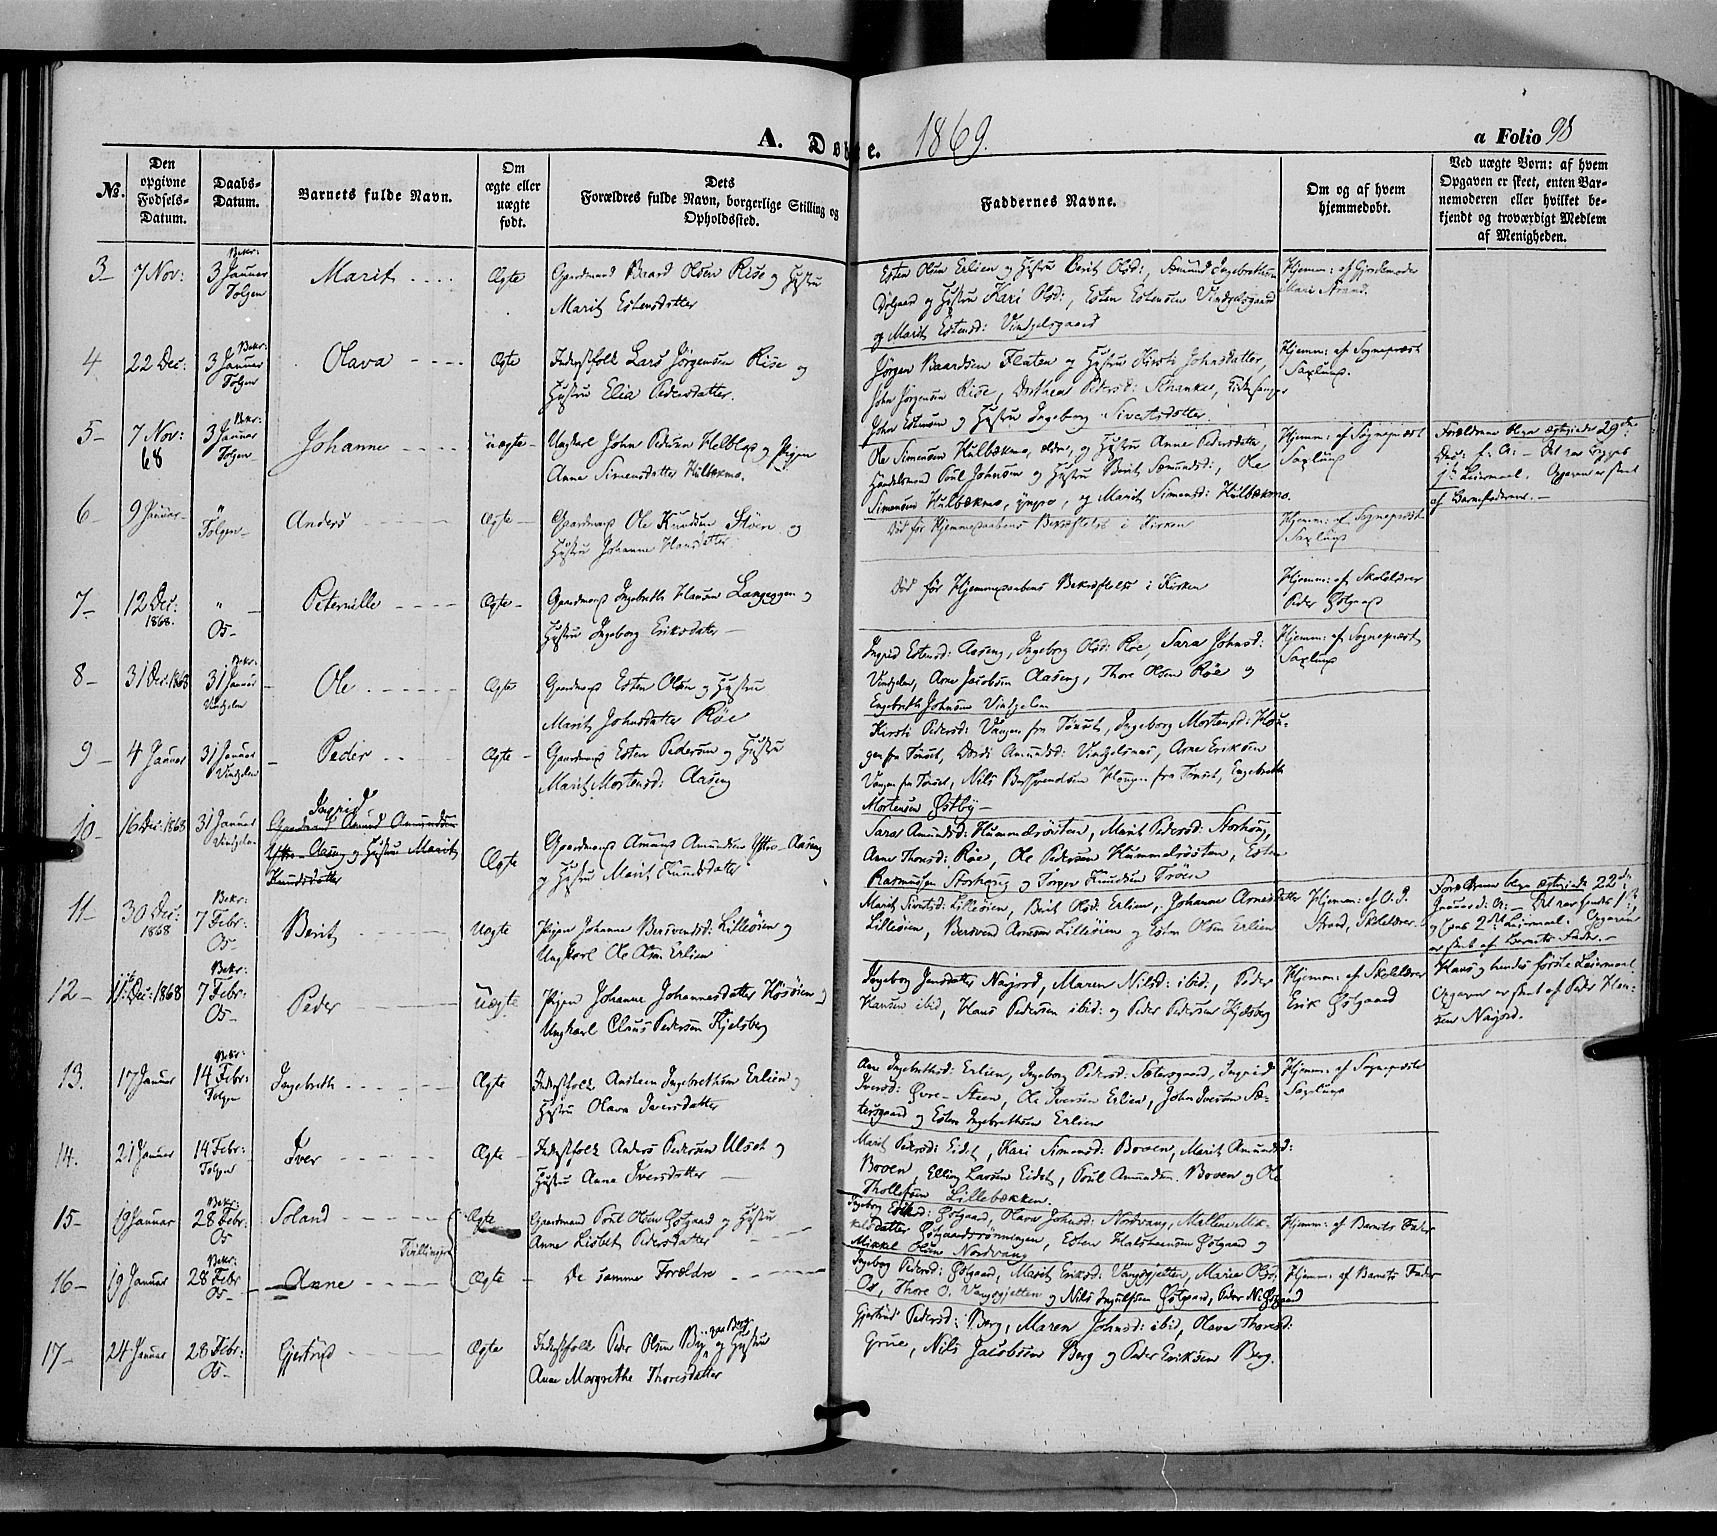 A. Døbte. 1869.
a Folio 98
No.
Den opgivne Fødsels-Datum.
Daabs-Datum.
Barnets fulde Navn.
Om ægte eller uægte født.
Dets Forældres fulde Navn, borgerlige Stilling og Opholdssted.
Faddernes Navne.
Om og af hvem hjemmedøbt.
Ved uægte Børn: af hvem Opgaven er skeet, enten Barnemoderen eller hvilket bekjendt og troværdigt Medlem af Menigheden.
3 7 Nov: Bekr: 3 Januar Tolgen Marit Ægte
Gaardmand Baard Olsen Rise og Hustru
Marit Estensdatter
Esten Olsen Erlien og Hustru Berit Olsd:, Amund Ingebrethsen
Dølgaard og Hustru Kari Olsd:, Esten Estensen Vindgelsgaard
og Marit Estensd: Vindgelsgaard
Hjemm: af Gjordemoder
Mari Strand.
4 22 Dec: Bekr: 3 Januar Tolgen Olava Ægte
Inderstfolk Lars Jørgensen Rise og
Hustru Elia Pedersdatter.
Jørgen Baardsen Flaten og Hustru Kirsti Johnsdatter,
John Jørgensen Rise, Dorthea Pedersd: Schanke, Kirkesanger
John Estensen og Hustru Ingeborg Sivertsdatter
Hjemm: af Sognepræst
Saxlund.
5 7 Nov: 68 Bekr: 3 Januar Tolgen Johanne uægte
Ungkarl John Pedersen og Pigen
Anne Simensdatter Hulbækmo.
Ole Simensen Hulbækmo, ældre, og Hustru Anne Pedersdatter,
Handelsmand Poul Johnsen og Hustru Berit Amundsd:, Ole
Simensen Hulbækmo, yngre, og Marit Simensd: Hulbækmo.
Hjemm: af Sognepræst
Saxlund
Forældrene begge 29de
Dec: f. A: — Det var begges
1ste Leiermaal. Opgaven er skeet
af Barnefaderen. —
6 9 Januar " Tolgen Anders Ægte
Gaardmand Ole Knudsen Støen og
Hustru Johanne Hansdatter
Død før Hjemmedaabens Bekræftelse i Kirken
Hjemm: af Sognepræst
Saxlund
7 12 Dec: 1868. " Os Peternille Ægte
Gaardmand Ingebreth Hansen Langeggen og
Hustru Ingeborg Eriksdatter
Død før Hjemmedaabens Bekræftelse i Kirken
Hjemm: af Skolelærer
Peder Østgaard
8 31 Dec: 1868 Bekr: 31 Januar Vindgelen Ole Ægte
Gaardmand Esten Olsen og Hustru
Marit Johnsdatter Røe
Ingrid Estensd: Aaseng, Ingeborg Olsd: Røe, Sara Johnsd:
Vindgelen, Arne Jacobsen Aaseng, Thore Olsen Røe og
Engebreth Johnsen Vindgelen
Hjemm: af Sognepræst
Saxlund
9 4 Januar 31 Januar Vindgelen Peder Ægte
Gaardmand Esten Pedersen og Hustru
Marit Mortensd: Aaseng
Kirsti Pedersd: Vangen fra Tønset, Ingeborg Mortensd: Hou-
gen fra Tønset, Dordi Amundsd: Vindgelsmo, Arne Eriksen
Vangen fra Tønset, Nils Hougen fra Tønset, Engebreth
Mortensen Østby
10 16 Dec: 1868 31 Januar Vindgelen Ingrid
Gaardmand Amund Amundsen
Yttre Aaseng og Hustru Marit
Knudsdatter
Ægte
Gaardmand Amund Amundsen Yttre Aaseng
og Hustru Marit Knudsdatter
Sara Amundsd: Hummelrøsten, Marit Pedersd: Storhoug,
Anne Thoresd: Røe, Ole Pedersen Hummelrøsten, Esten
Rasmussen Storhoug og Torger Knudsen Trøen
11 30 Dec: 1868 Bekr: 7 Febr: Os Berit Uægte
Pigen Johanne Bersvendsd: Lilleøien og
Ungkarl Ole Olsen Erlien
Marit Sivertsd: Lilleøien, Berit Olsd: Erlien, Johanne Arnesdatter
Lilleøien, Bersvend Arnesen Lilleøien og Esten Olsen Erlien
Hjemm: af O. J.
Strand, Skolelærer.
Forældrene begge 22de
Januar d: A: — Det var hendes 1ste
og hans 2det Leiermaal. Opgaven
er skeet af Barnets Fader. —
12 11te Dec: 1868 Bekr: 7 Febr: Os Peder Uægte
Pigen Johanne Johannesdatter Høsøien og
Ungkarl Claus Pedersen Kjelsberg
Ingeborg Jensdatter Nøjord, Maren Nilsd: ibid:, Peder
Hansen ibid, Hans Pedersen ibid: og Peder Pedersen Kjelsberg
Hjemm: af Skolelærer
Erik Østgaard
Hans og hendes første Leiermaal.
Opgaven er skeet af Peder Han-
sen Nøjord.
13. 17 Januar Bekr: 14 Febr: Tolgen Ingebreth Ægte
Inderstfolk Anstein Ingebrethsen Erlien og
Hustru Olava Iversdatter
Anne Ingebrethsd: Erlien, Ingeborg Pedersd: Sætersgaard, Ingrid
Iversd: Øvre-Steen, Ole Iversen Erlien, John Iversen Sæ-
tersgaard og Esten Ingebrethsen Erlien
Hjemm: af Sognepræst
Saxlund
14. 21 Januar 14 Febr: Tolgen Iver Ægte
Inderstfolk Anders Pedersen Ulset og
Hustru Anne Iversdatter
Marit Pedersd: Eidet, Kari Simensd: Boven, Marit Amundsd:
Boven, Elling Larsen Eidet, Poul Amundsen Boven og Ole
Thollefsen Lillebækken.
15 19 Januar Bekr: 28 Febr: Os Soland Ægte
Gaardmand Poul Olsen Østgaard og Hustru
Anne Lisbet Pedersdatter
Tvillinger
Ingeborg Østgaard, Olava Johnsd: Nordvang, Mallene Mik-
kelsdatter Østgaardsrønningen, Esten Halsteensen Østgaard og
Mikkel Olsen Nordvang
Hjemm: af Barnets Fader
16 19 Januar Bekr: 28 Febr Os Anne Ægte
De samme Forældre
Ingeborg Pedersd: Østgaard, Marit Eriksd: Vangsgjelten, Maria Olsd:
Os, Thore O. Vangsgjelten og Nils Ingulfsen Østgaard, Peder N: Østgaard
Hjemm: af Barnets Fader
17 24 Januar 28 Febr: Os Gjertrud Ægte
Inderstfolk Peder Olsen Berg og Hustru
Anne Margrethe Thoresdatter
Gjertrud Pedersd: Berg, Maren Johnsd: ibid, Olava Thoresd:
Grue, Nils Jacobsen Berg og Peder Eriksen Berg.